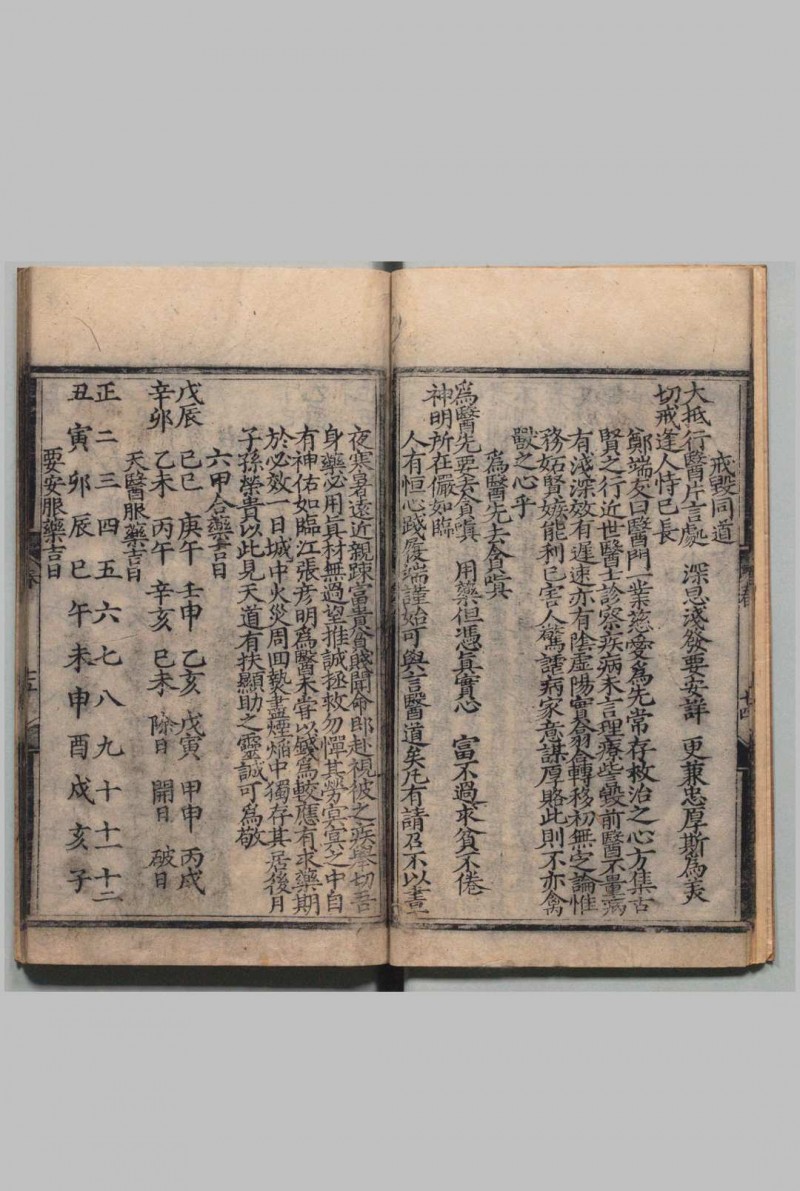 戒毀同道
大抵行醫片言處　深思淺發要安詳　更兼忠厚斯為美
切戒逹人恃已長
鄭端友曰醫門一業慈愛為先常存救治之心方集古
賢之行近世醫士診察疾病未言理療訾毀前醫不量病
有淺深效有遲速亦有陰虛陽實翕合轉移初無定論惟
務妬賢嫉能利已害人驚諕病家意謀厚賂此則不亦禽
獸之心乎
為醫先去貪嗔
為醫先要去貪嗔　用藥但憑真實心　富不過求貧不倦
神明所在儼如臨
人有恒心踐履端謹始可與言醫道矣凡有請召不以晝
夜寒暑遠近親踈富貴貧賤聞命即赴視彼之疾舉切吾
身藥必用真材無過望推誠拯救勿憚其勞冥冥之中自
有神佑如臨江張彦明為醫未甞以錢為較應有求藥期
於必效一日城中火災周回爇盡煙焰中獨存其居後月
子孫榮貴以此見天道有扶顯助之靈誠可為敬
六甲合藥吉日
戊辰　己巳　庚午　壬申　乙亥　戊寅　甲申　丙戌
辛卯　乙未　丙午　辛亥　己未　除日　開日　破日
天醫服藥吉日
正二三四五六七八九十十一十二
丑寅卯辰巳午未申酉戌亥子
要安服藥吉日